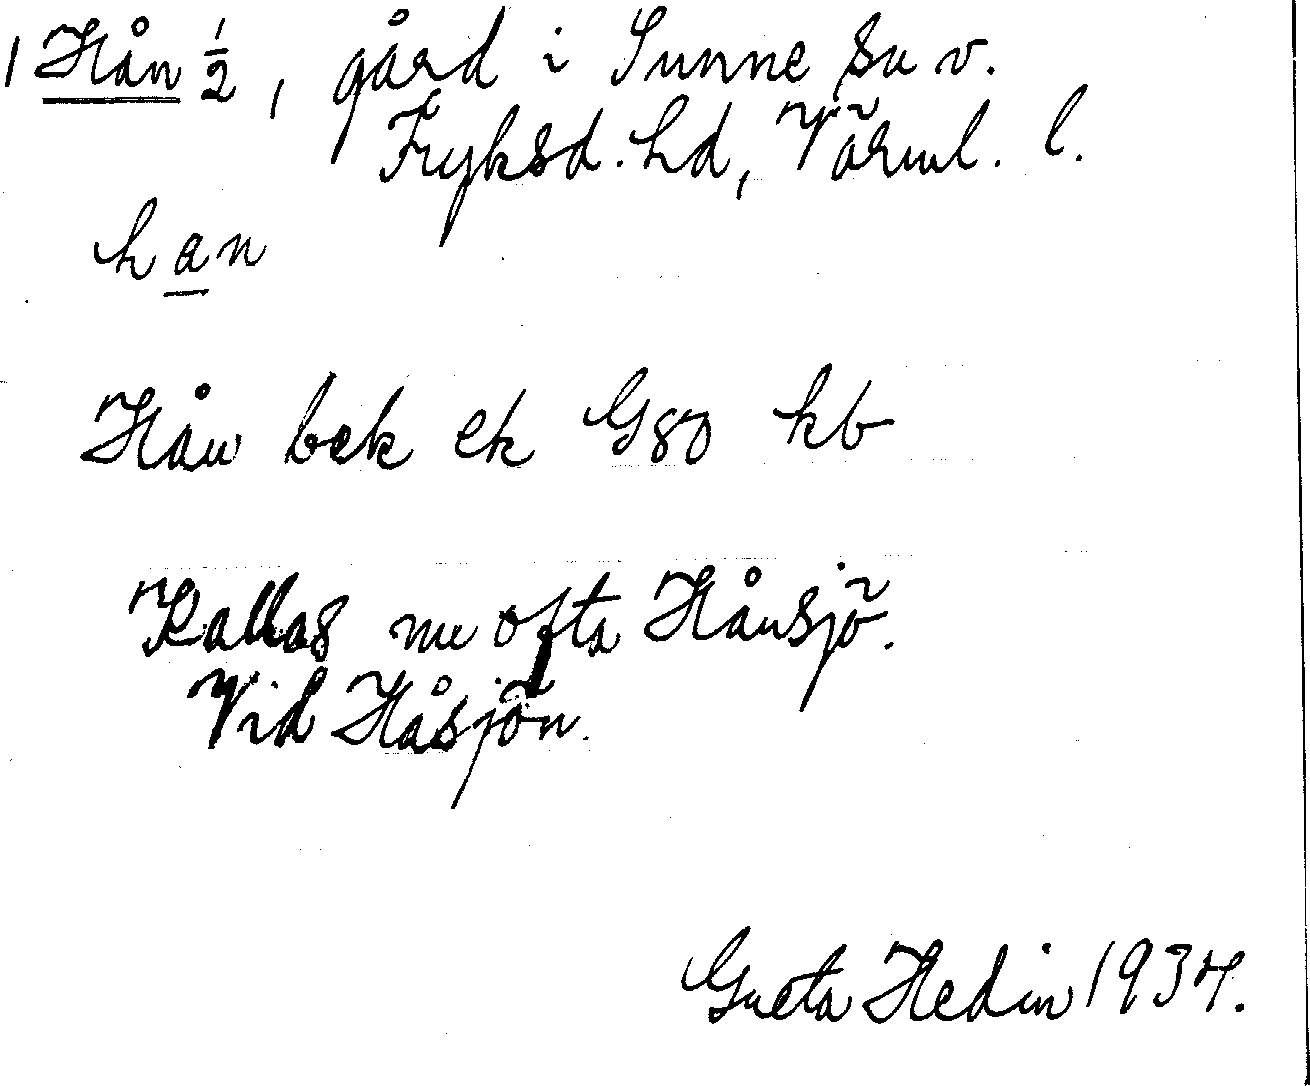 1 Hån ½, gård i Sunne sn v.
Fryksd. hd, Värml. l.
han
Hån bek ek G80 kb
Kallas nu ofta Hånsjö.
Vid Håsjön.
Greta Hedin 1934.